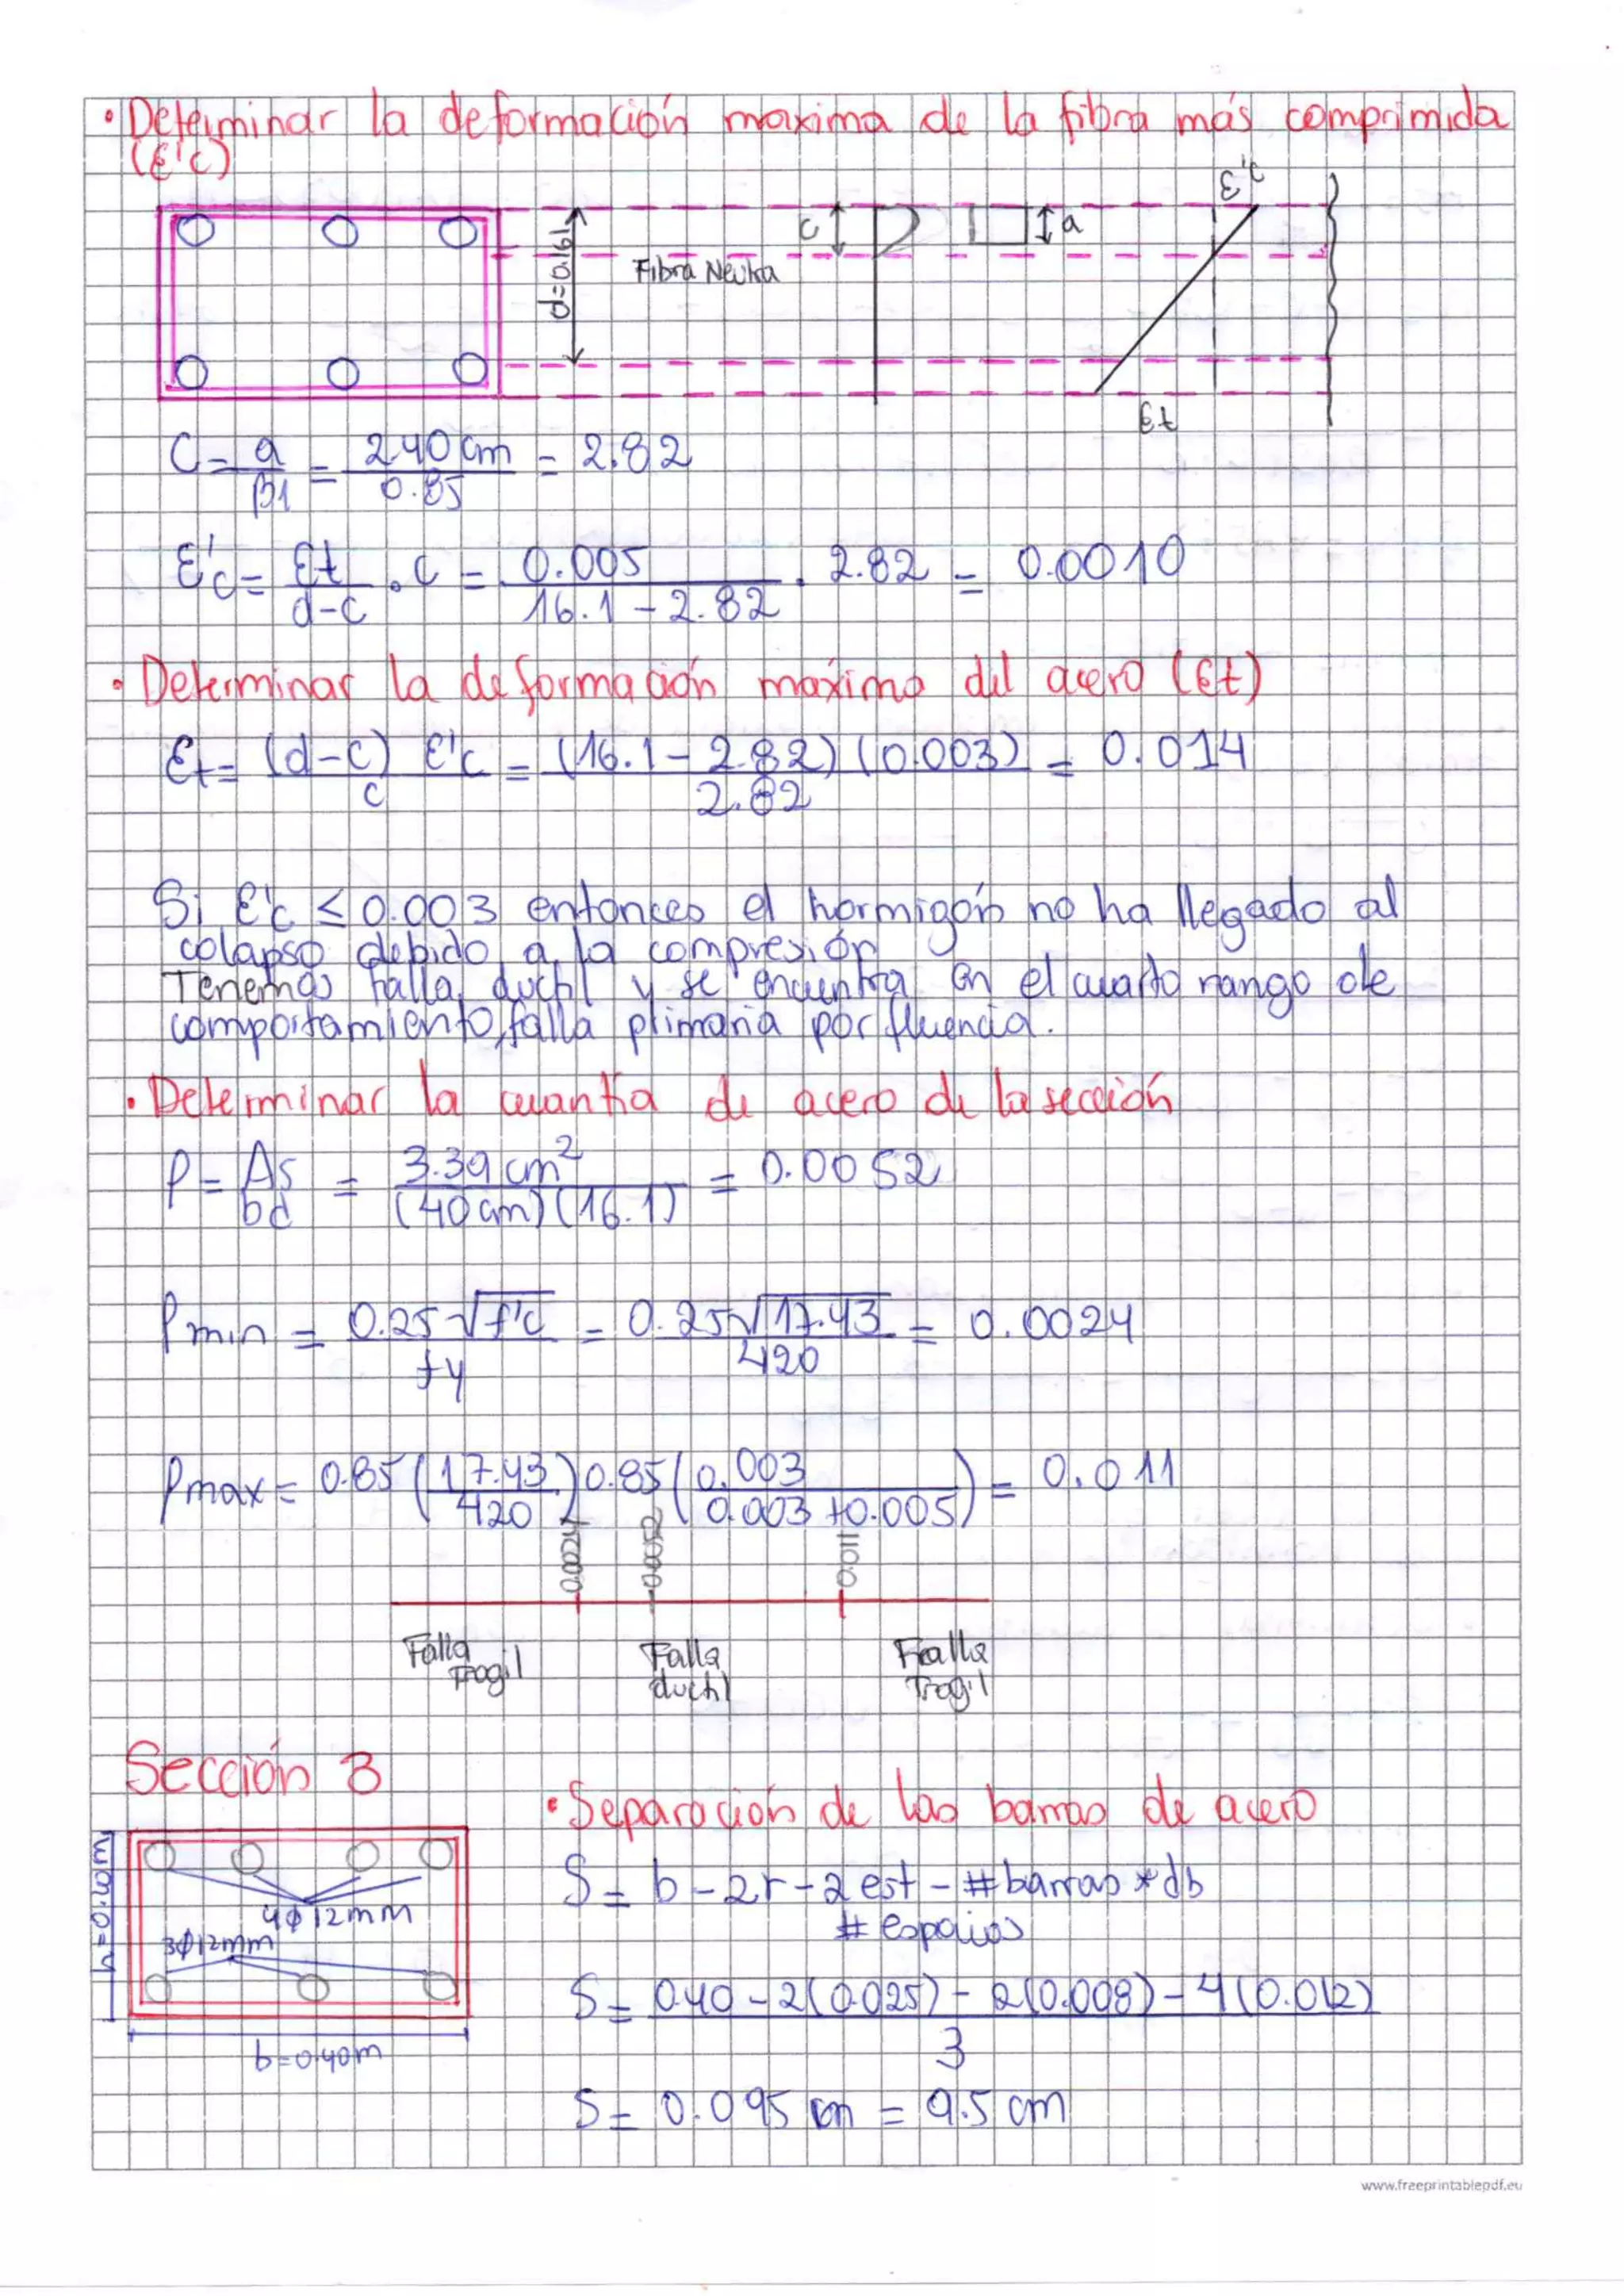 • Determinar la deformación maxima de la fibra más comprimida
(ε'c)
ε'c
c
a
d=0.161
Fibra Neutra
εt
C = a/β1 = 2.40 cm/0.85 = 2.82
ε'c = εt/(d-c) · c = 0.005/(16.1 - 2.82) · 2.82 = 0.0010
• Determinar la deformación maxima del acero (εt)
εt = (d-c) ε'c/c = (16.1 - 2.82)(0.003)/2.82 = 0.014
Si ε'c ≤ 0.003 entonces el hormigón no ha llegado al
colapso debido a la compresión
Tenemos falla ductil y se encuentra en el cuarto rango de
comportamiento, falla primaria por fluencia.
• Determinar la cuantia de acero de la sección
ρ = As/bd = 3.39 cm²/(40cm)(16.1) = 0.0052
ρmin = 0.25 √f'c/fy = 0.25√17.43/420 = 0.0024
ρmax = 0.85 (17.43/420) 0.85 (0.003/(0.003+0.005)) = 0.011
0.0024 0.0052 0.011
Falla Fragil
Falla ductil
Fralla Fragil
Sección 3
• Separación de las barras de acero
h=0.20m
4ϕ12mm
3ϕ12mm
b=0.40m
S = b - 2r - 2est - #barras * db/# espacios
S = 0.40 - 2(0.025) - 2(0.008) - 4(0.012)/3
S = 0.095 m = 9.5 cm
www.freeprintablepdf.eu